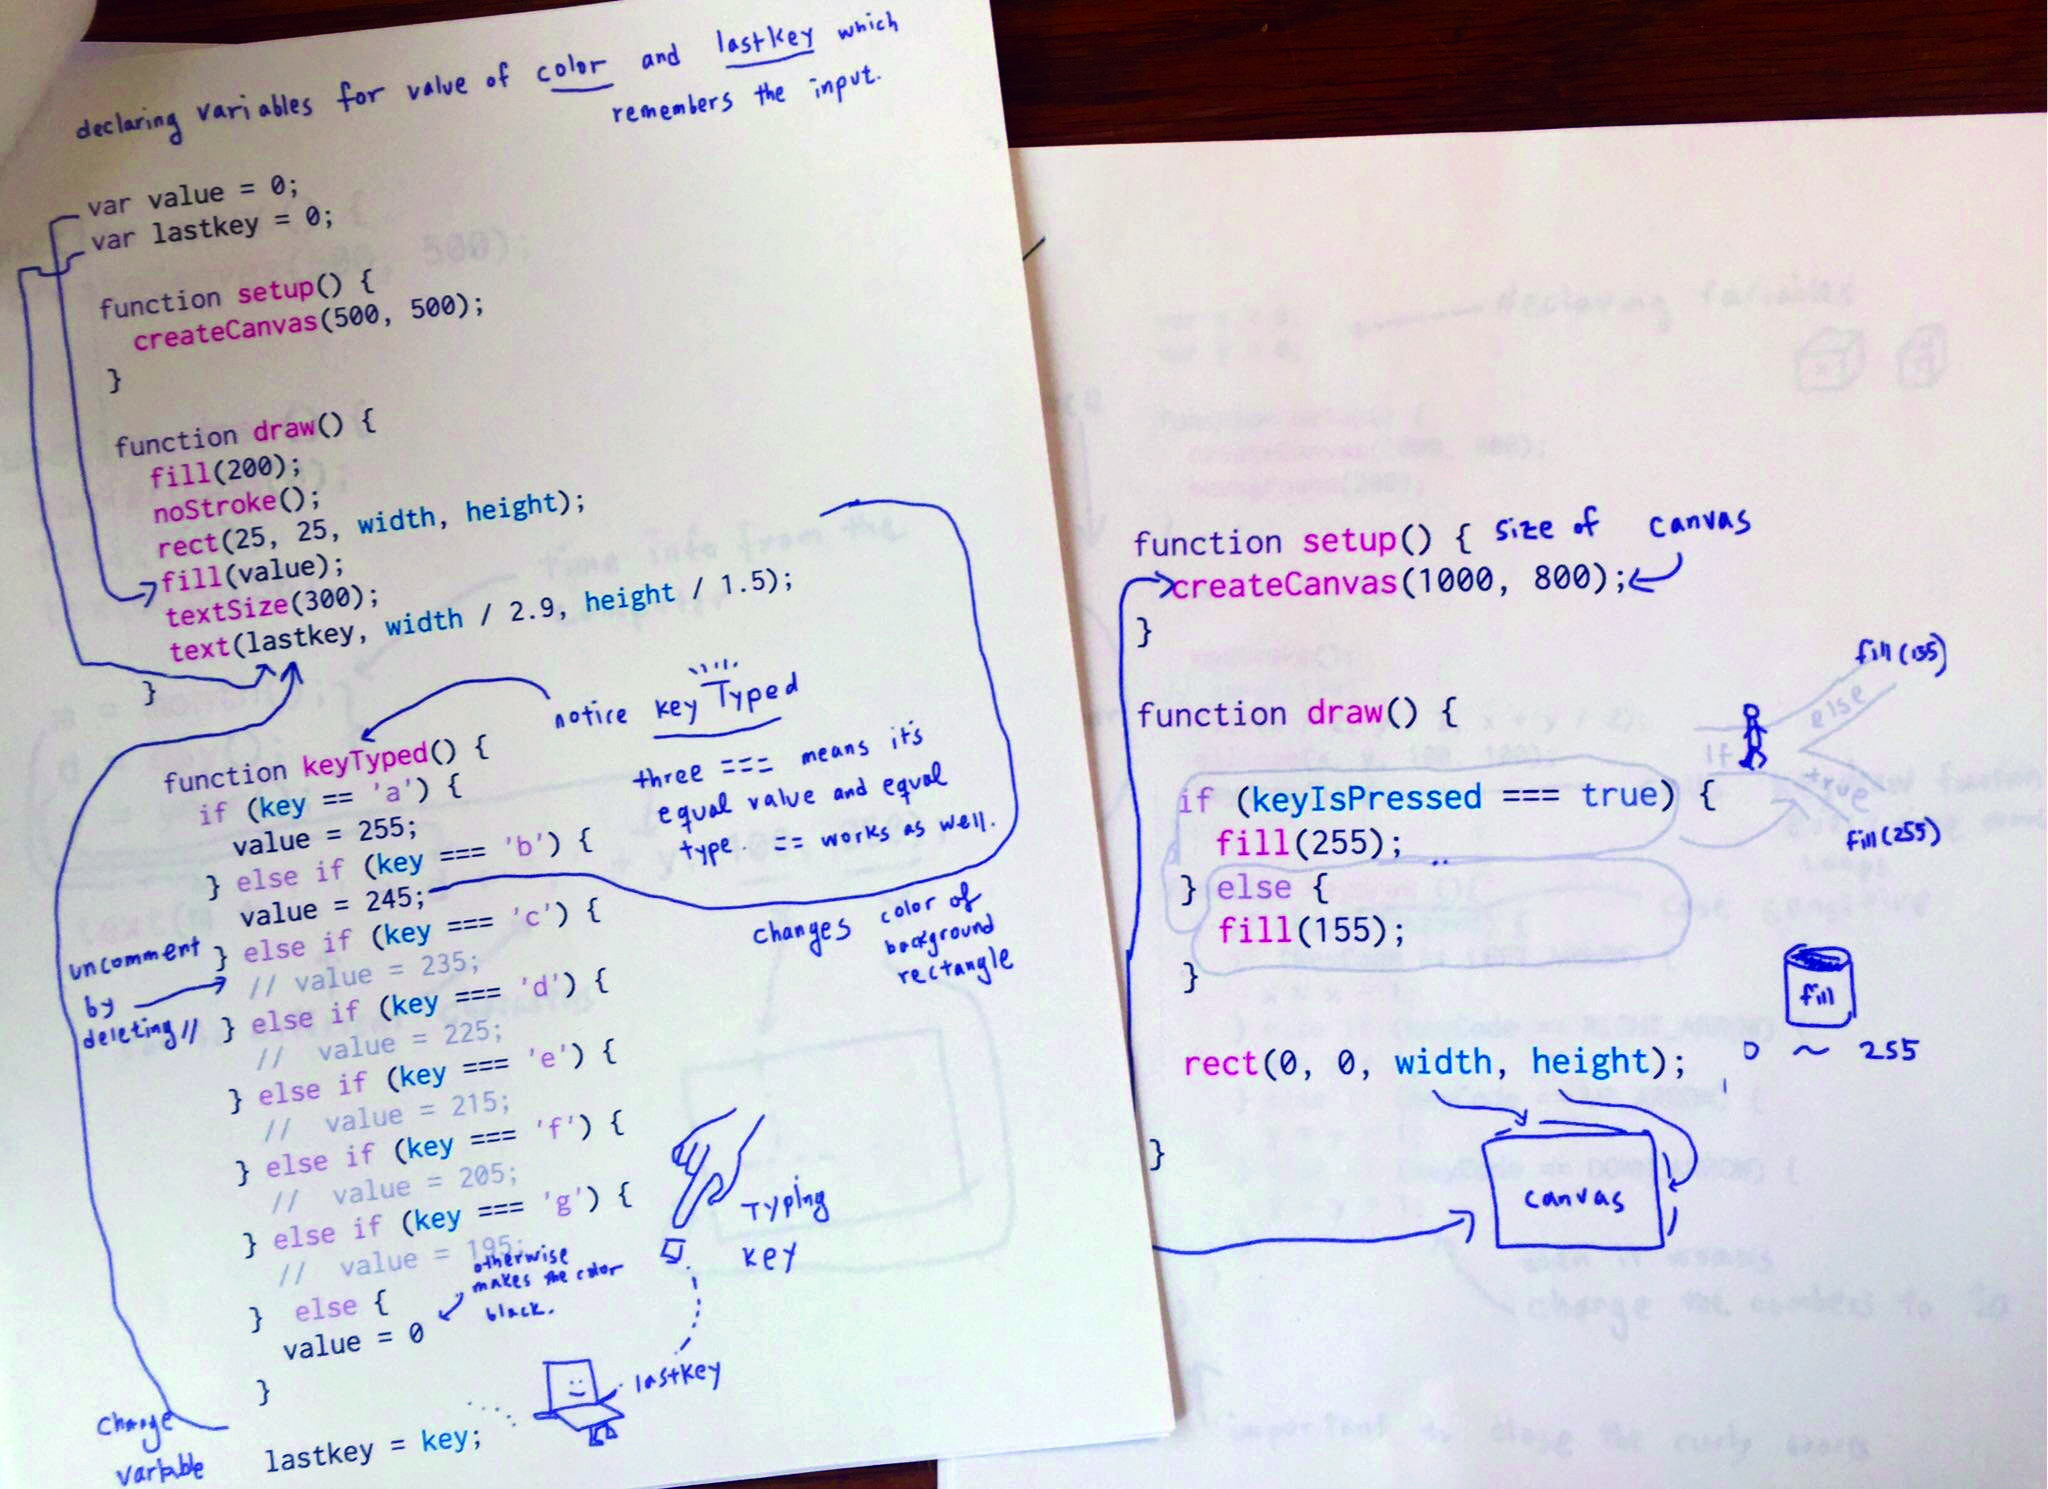 declaring variables for value of color and lastkey which
remembers the input.
var value = 0;
var lastkey = 0;
function setup() {
createCanvas(500, 500);
}
function draw() {
fill(200);
noStroke();
rect(25, 25, width, height);
fill(value);
textSize(300);
text(lastkey, width / 2.9, height / 1.5);
}
notice key Typed
function keyTyped() {
if (key == 'a') {
value = 255;
} else if (key === 'b') {
value = 245;
} else if (key === 'c') {
// value = 235;
} else if (key === 'd') {
// value = 225;
} else if (key === 'e') {
// value = 215;
} else if (key === 'f') {
// value = 205;
} else if (key === 'g') {
// value = 195;
} else {
value = 0
}
lastkey = key;
three === means its
equal value and equal
type. == works as well.
changes color of
background
rectangle
uncomment
by
deleting //
otherwise
makes the color
black.
Typing
key
lastkey
change
variable
function setup() { size of canvas
createCanvas(1000, 800);
}
function draw() {
if (keyIsPressed === true) {
fill(255);
} else {
fill(155);
}
rect(0, 0, width, height);
}
fill(155)
else
if
true
fill(255)
fill
0 ~ 255
canvas